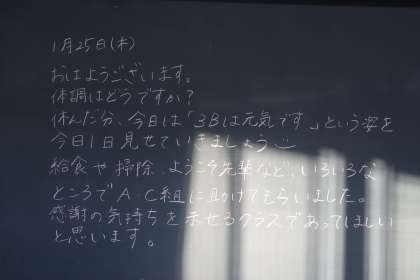 1月25日(木)
おはようございます。
体調はどうですか?
休んだ分、今日は「3Bは元気です」という姿を
今日1日見せていきましょう
給食や掃除、ようこそ先輩など、いろいろな
ところでA・C組に助けてもらいました。
感謝の気持ちを示せるクラスであってほしい
と思います。